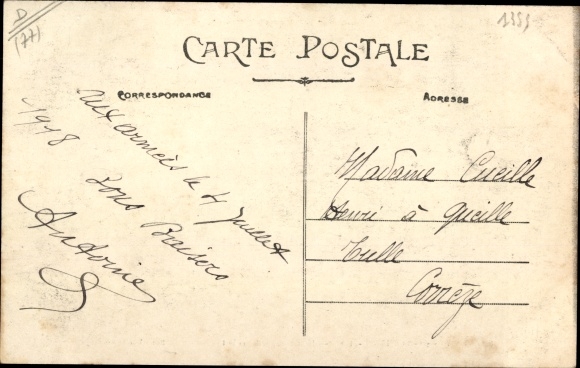 D
(77)
1355
CARTE POSTALE
CORRESPONDANCE
ADRESSE
Aux armées le 4 Juillet
1918
Bons Baisers
Antoine
Madame Cueille
Henri à Gueille
Tulle
Corrèze